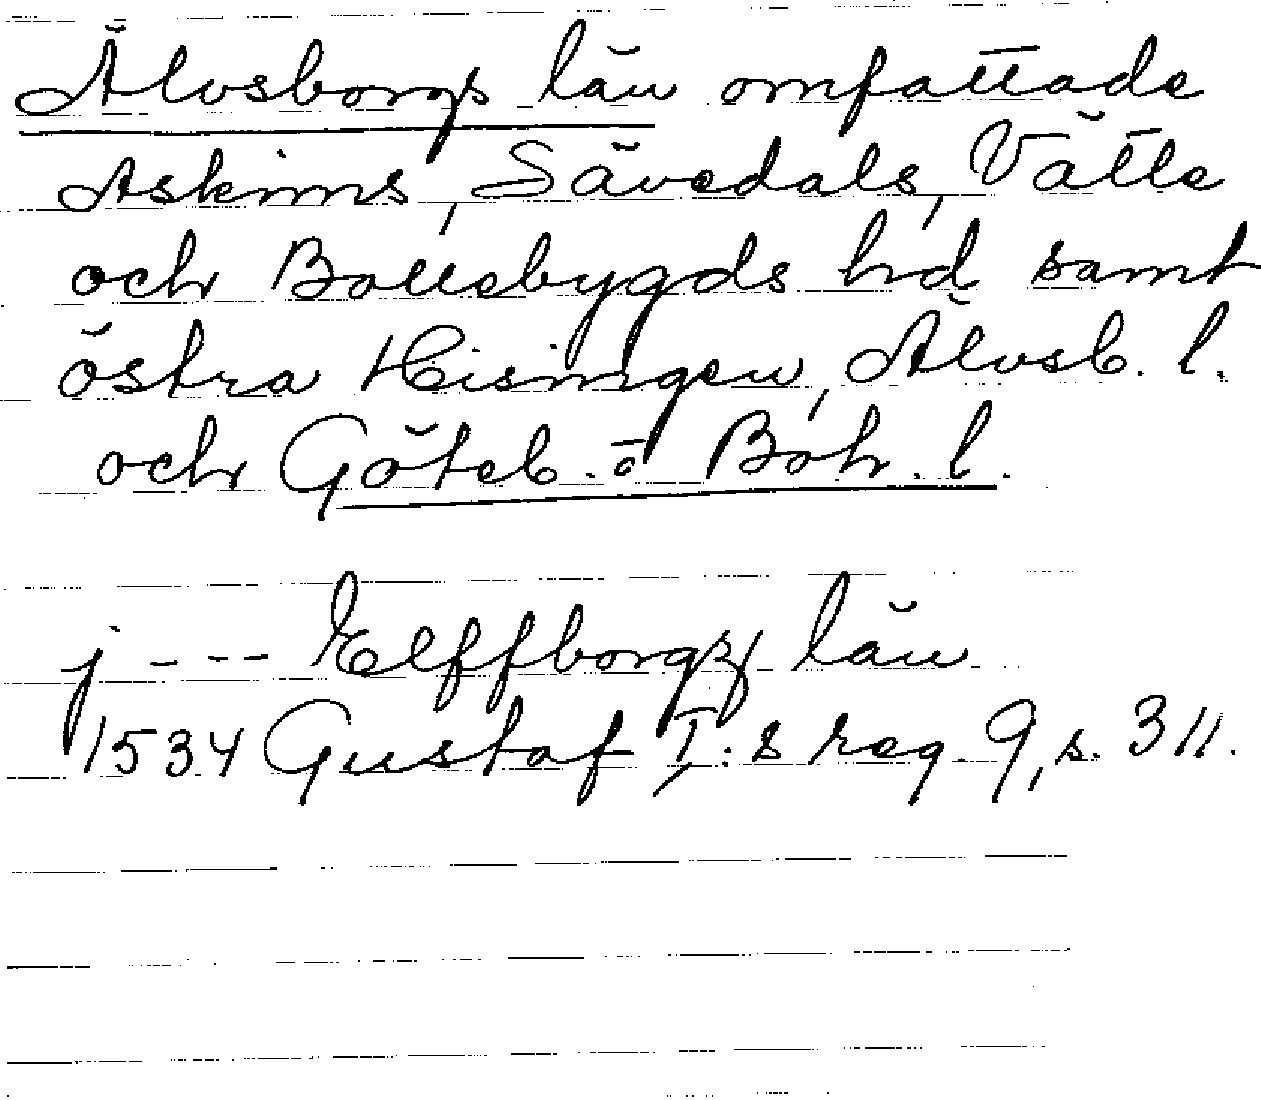 Älvsborgs län omfattade
Askims, Sävedals, Vätte
och Bollebygds hd samt
östra Hisingen, Älvsb. l.
och Göteb. o Boh. l.
j --- Elffborgz län
1534 Gustaf I:s reg. 9, s. 311.